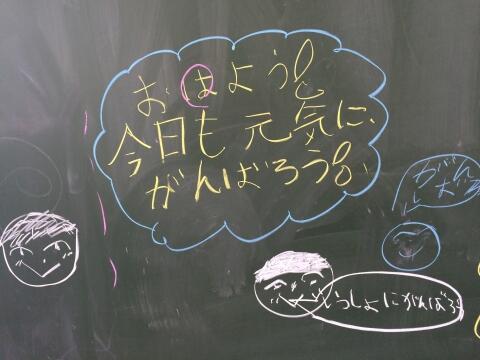 おはよう!
今日も元気に、
がんばろう!
がん
ばろ
いっしょにがんばろう